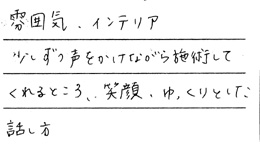 雰囲気、インテリア
少しずつ声をかけながら施術して
くれるところ、笑顔、ゆっくりとした
話し方